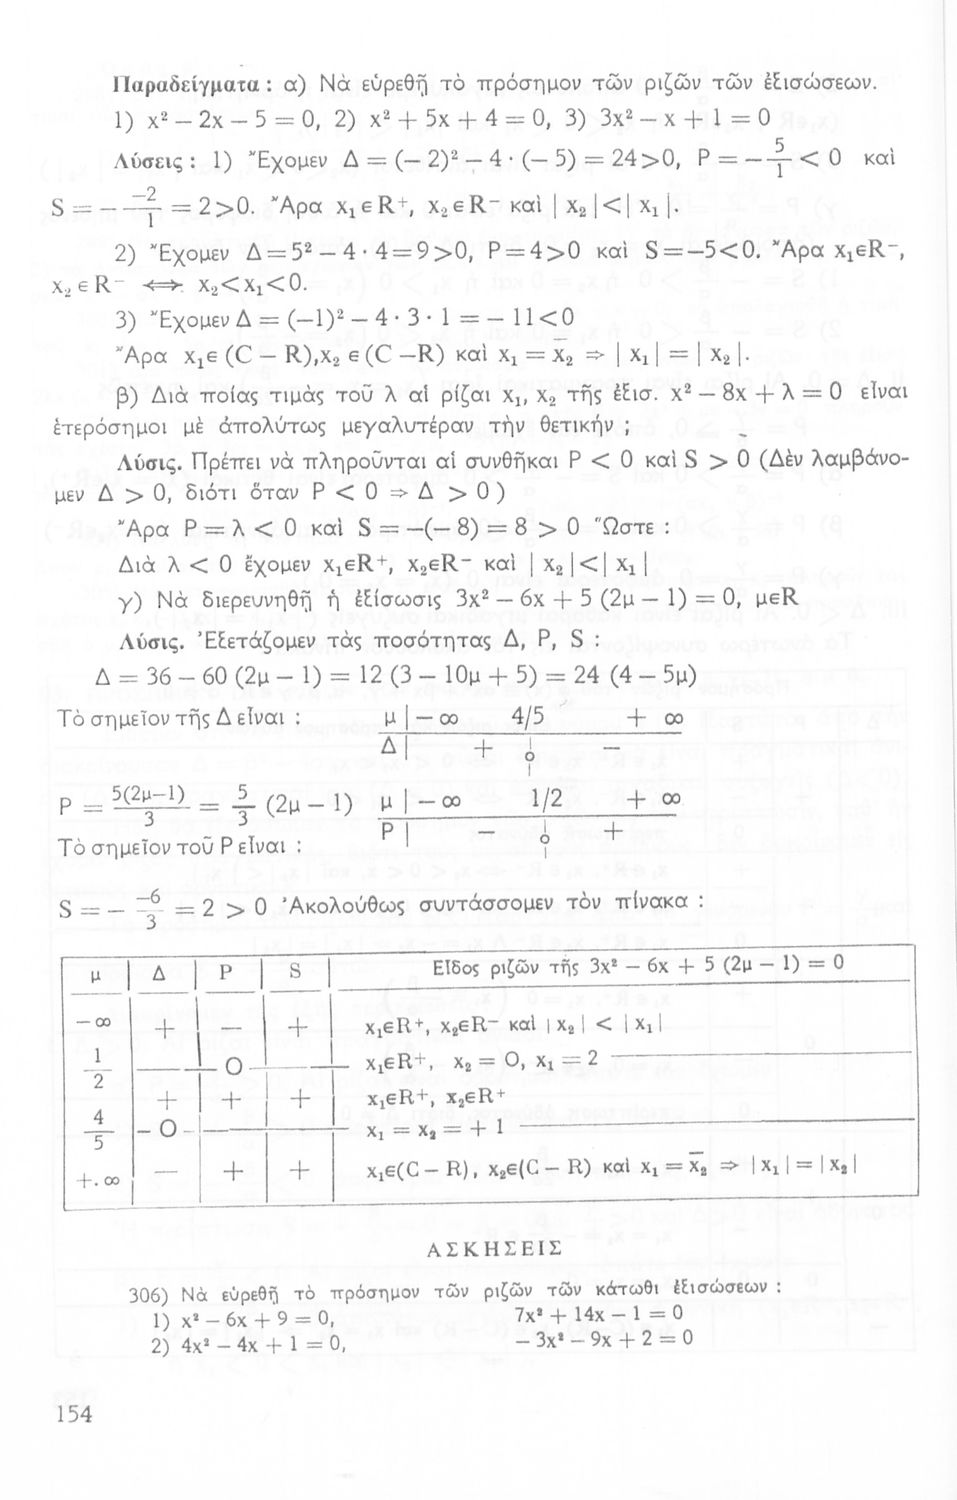 Παραδείγματα : α) Νὰ εὑρεθῇ τὸ πρόσημον τῶν ριζῶν τῶν ἐξισώσεων.
1) x² — 2x — 5 = 0, 2) x² + 5x + 4 = 0, 3) 3x² — x + 1 = 0
Λύσεις : 1) Ἔχομεν Δ = (— 2)² — 4 · (— 5) = 24>0, P = — 5/1 < 0 καὶ
S = — —2/1 = 2>0. Ἄρα x₁ϵR⁺, x₂ϵR⁻ καὶ | x₂ |<| x₁ |.
2) Ἔχομεν Δ=5² — 4 · 4=9>0, P=4>0 καὶ S=—5<0. Ἄρα x₁ϵR⁻,
x₂ϵR⁻ ⟺ x₂<x₁<0.
3) Ἔχομεν Δ = (—1)² — 4 · 3 · 1 = — 11<0
Ἄρα x₁ϵ (C — R),x₂ ϵ (C —R) καὶ x₁ = x₂ ⇒ | x₁ | = | x₂ |.
β) Διὰ ποίας τιμὰς τοῦ λ αἱ ρίζαι x₁, x₂ τῆς ἐξισ. x² — 8x + λ = 0 εἶναι
ἑτερόσημοι μὲ ἀπολύτως μεγαλυτέραν τὴν θετικήν ;
Λύσις. Πρέπει νὰ πληροῦνται αἱ συνθῆκαι P < 0 καὶ S > 0 (Δὲν λαμβάνο-
μεν Δ > 0, διότι ὅταν P < 0 ⇒ Δ > 0 )
Ἄρα P = λ < 0 καὶ S = —(— 8) = 8 > 0 Ὥστε :
Διὰ λ < 0 ἔχομεν x₁ϵR⁺, x₂ϵR⁻ καὶ | x₂ |<| x₁ |
γ) Νὰ διερευνηθῇ ἡ ἐξίσωσις 3x² — 6x + 5 (2μ — 1) = 0, μϵR
Λύσις. Ἐξετάζομεν τὰς ποσότητας Δ, P, S :
Δ = 36 — 60 (2μ — 1) = 12 (3 — 10μ + 5) = 24 (4 — 5μ)
Τὸ σημεῖον τῆς Δ εἶναι : μ | — ∞ 4/5 + ∞
Δ | + 0 —
P = 5(2μ—1)/3 = 5/3 (2μ — 1) μ | — ∞ 1/2 + ∞
Τὸ σημεῖον τοῦ P εἶναι : P | — 0 +
S = — —6/3 = 2 > 0 Ἀκολούθως συντάσσομεν τὸν πίνακα :
μ | Δ | P | S | Εἶδος ριζῶν τῆς 3x² — 6x + 5 (2μ — 1) = 0
— ∞ + — + x₁ϵR⁺, x₂ϵR⁻ καὶ | x₂ | < | x₁ |
1/2 0 x₁ϵR⁺, x₂ = 0, x₁ = 2
+ + + x₁ϵR⁺, x₂ϵR⁺
4/5 0 x₁ = x₂ = + 1
+ ∞ — + + x₁ϵ(C — R), x₂ϵ(C — R) καὶ x₁ = x̄₂ ⇒ | x₁ | = | x₂ |
ΑΣΚΗΣΕΙΣ
306) Νὰ εὑρεθῇ τὸ πρόσημον τῶν ριζῶν τῶν κάτωθι ἐξισώσεων :
1) x² — 6x + 9 = 0, 7x² + 14x — 1 = 0
2) 4x² — 4x + 1 = 0, — 3x² — 9x + 2 = 0
154